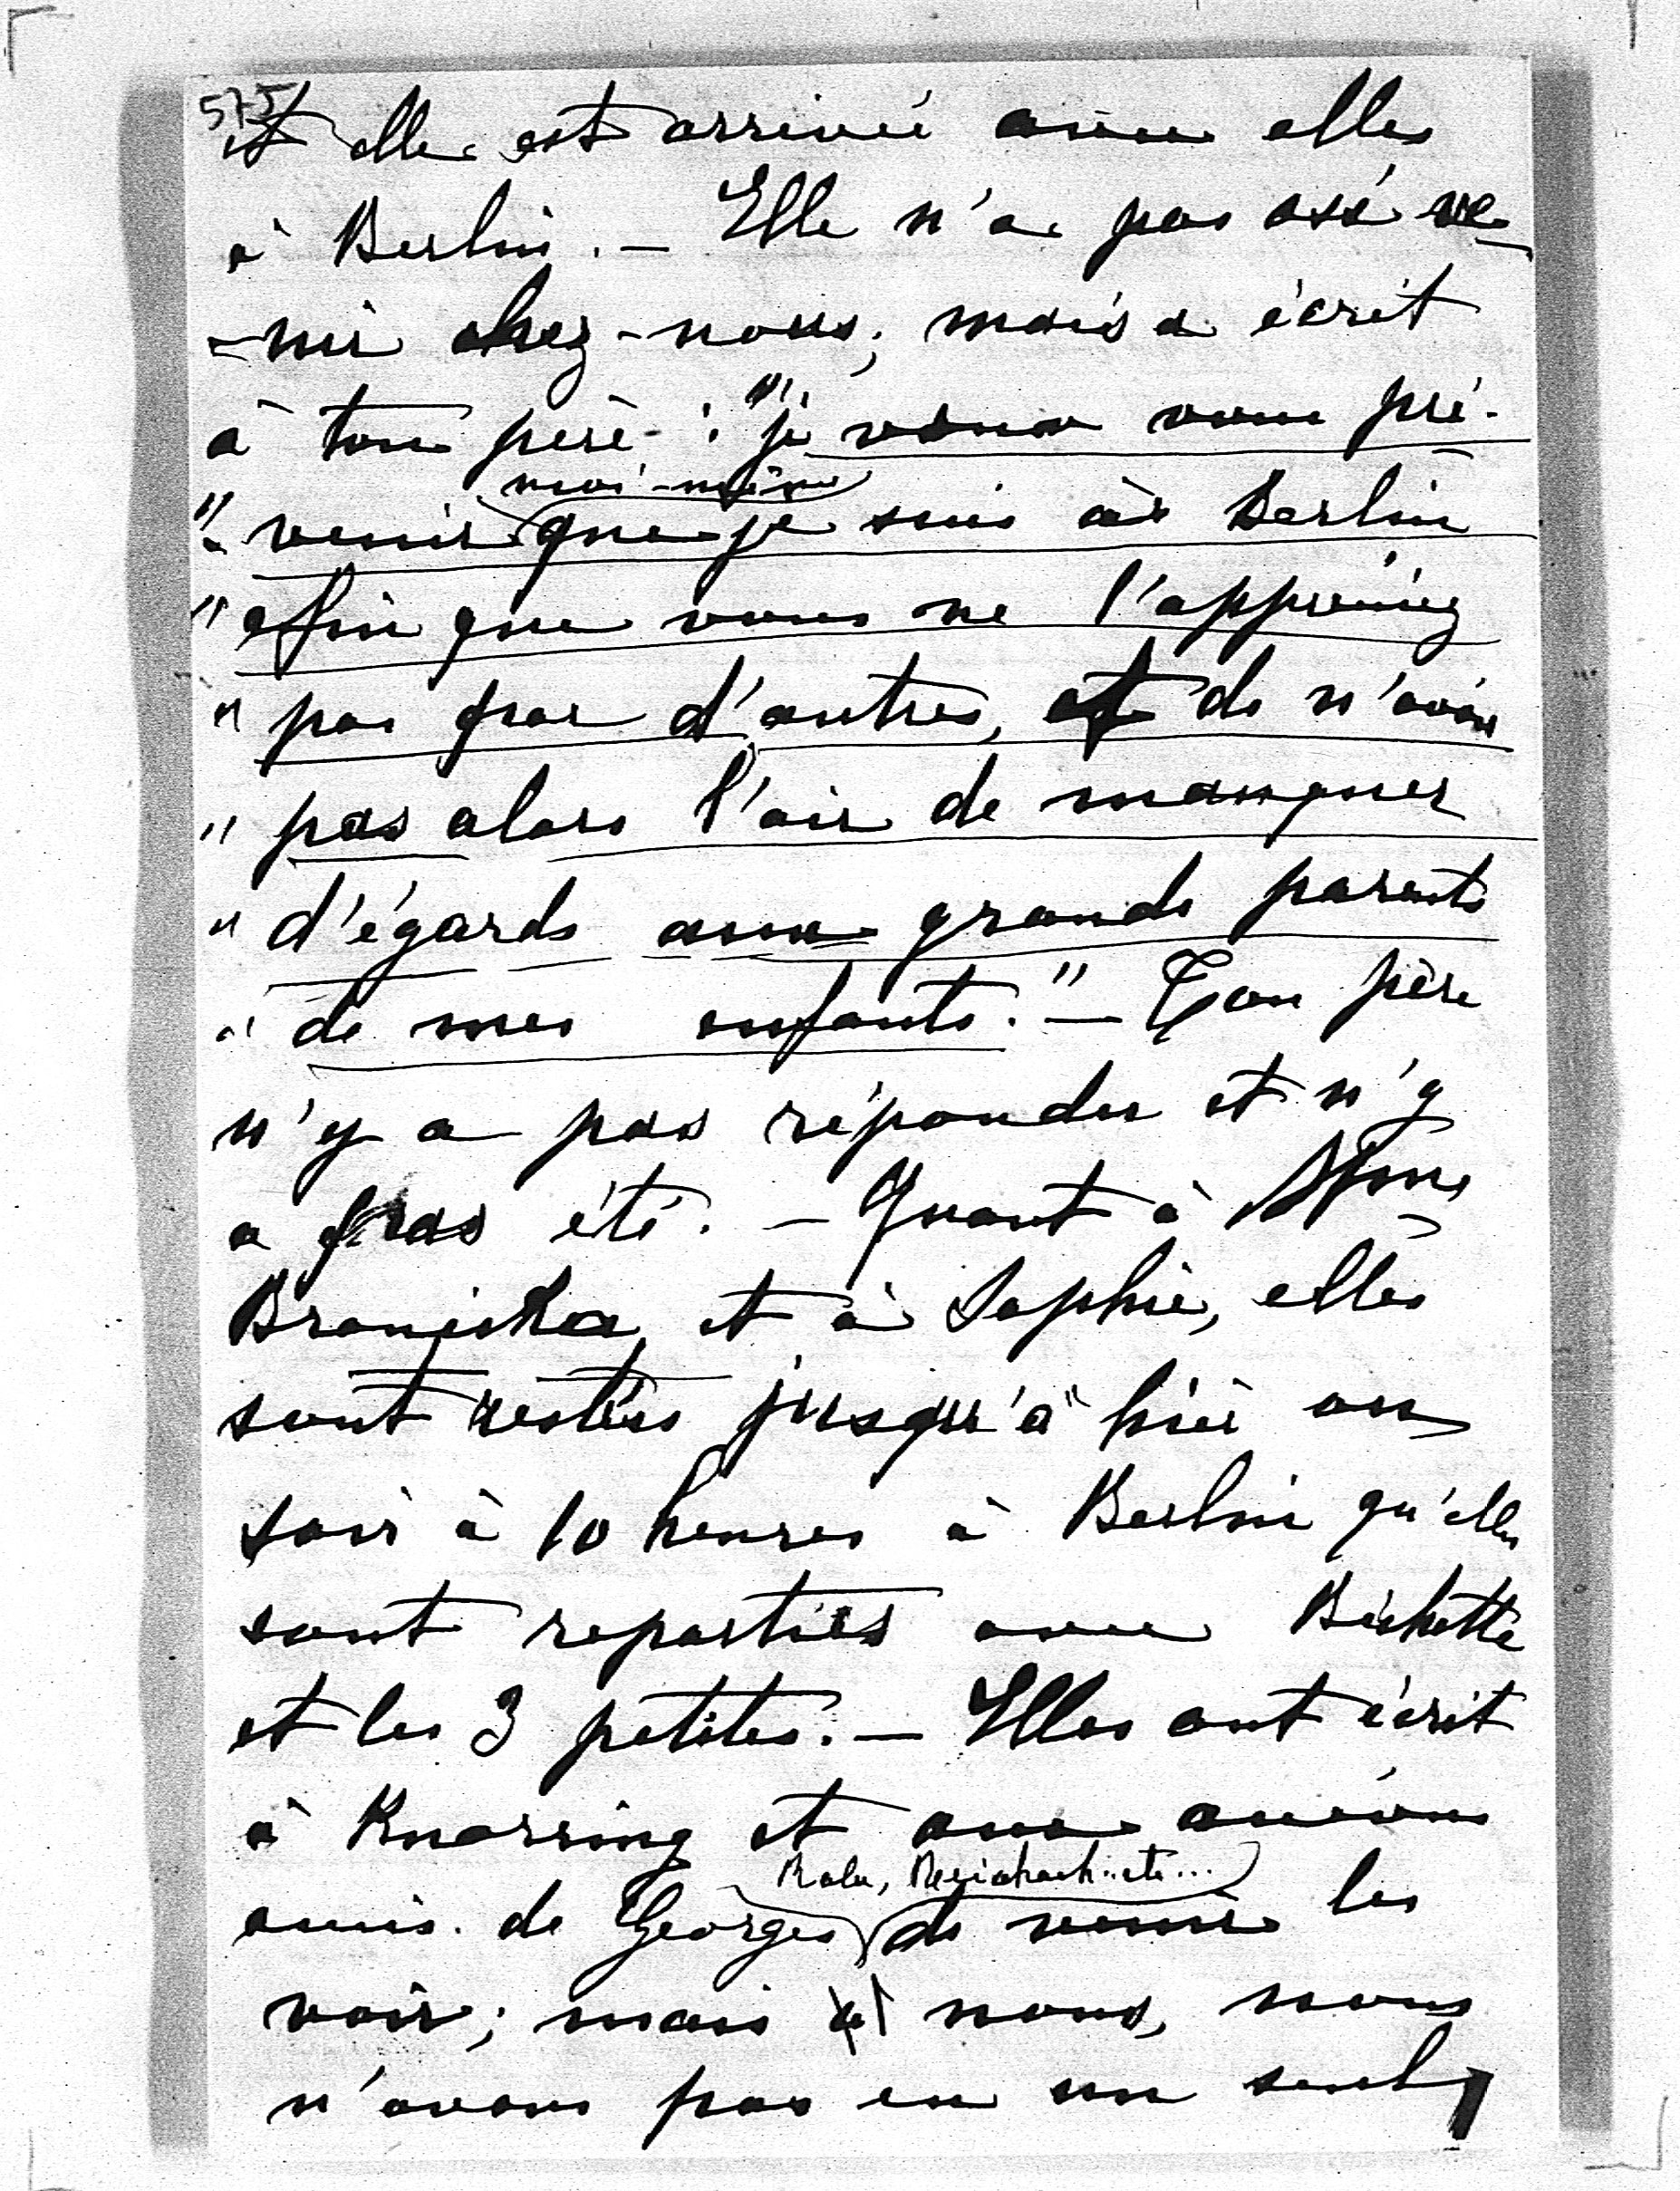 575
et elle est arrivée avec elles
à Berlin. — Elle n'a pas osé ve-
-nir chez-nous; mais a écrit
à ton père : "je viens vous pré-
moi-même
" venir que je suis à Berlin
" afin que vous ne l'appreniez
" pas par d'autres, et de n'avoir
" pas alors l'air de manquer
" d'égards aux grands parents
" de mes enfants." — Ton père
n'y a pas répondu et n'y
a pas été. — Quant à Mme
Branicka et à Sophie, elles
sont restées jusqu'à hier au
soir à 10 heures à Berlin qu'elles
sont reparties avec Bichette
et les 3 petites. — Elles ont écrit
à Knorring et aux anciens
etc...
amis de Georges de venir les
voir; mais à nous, nous
n'avons pas eu un seul